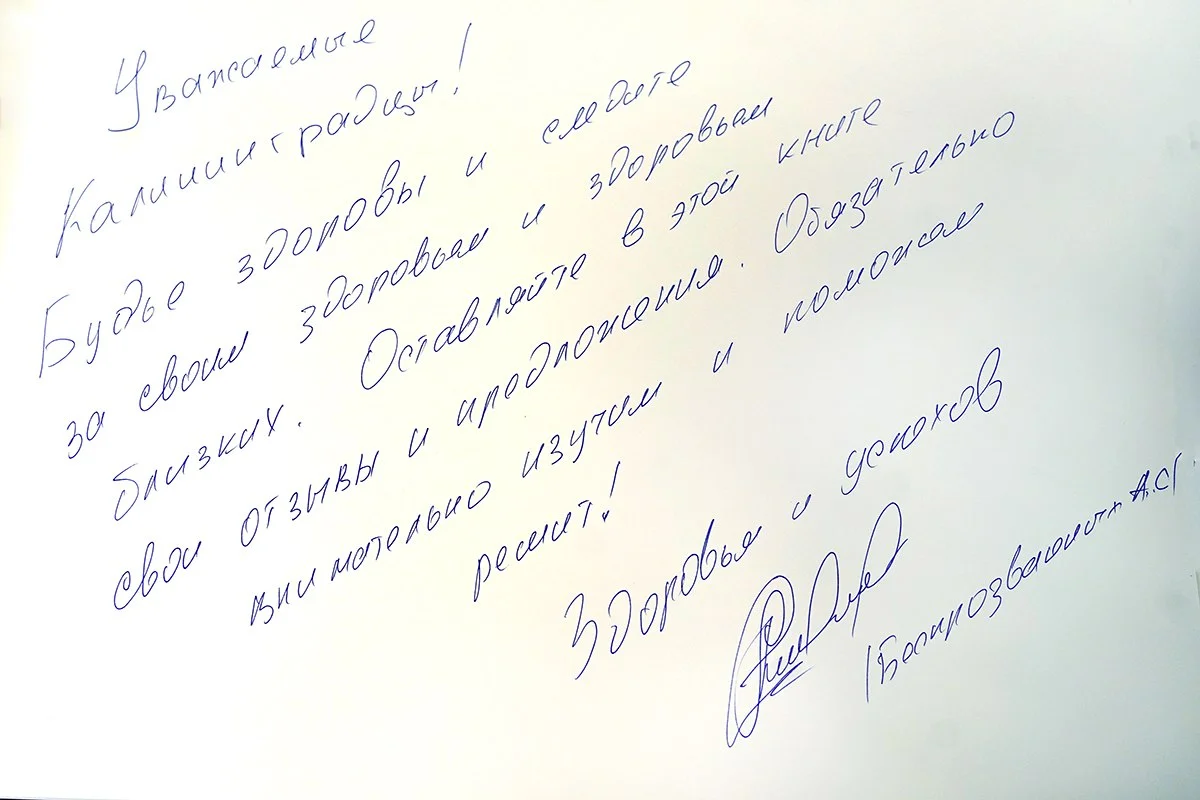 Уважаемые
Калининградцы!
Будье здоровы и следите
за своим здоровьем и здоровьем
близких. Оставляйте в этой книге
свои отзывы и предложения. Обязательно
внимательно изучим и поможем
решит!
Здоровья и успехов
/Беспрозванных А.С/.